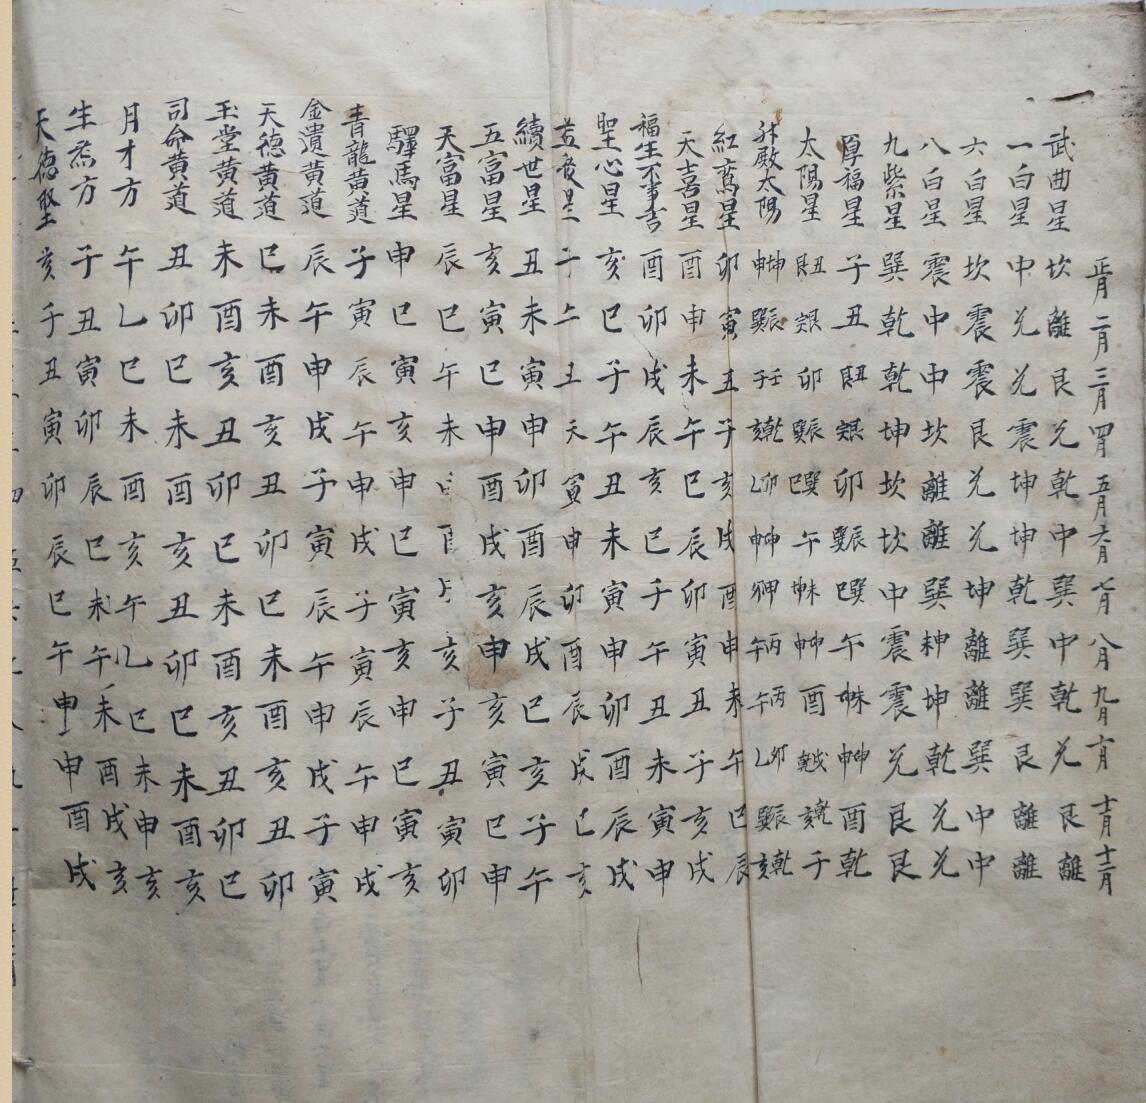 正月二月三月四月五月六月七月八月九月十月十一月十二月
武曲星坎離艮兌乾中巽中乾兌艮離
一白星中兌兌震坤坤乾巽巽艮離離
六白星坎震震艮兌兌坤離離巽中中
八白星震中中坎離離巽坤坤乾兌兌
九紫星巽乾乾坤坎坎中震震兌艮艮
厚福星子丑艮丑艮寅卯巽辰巽巳午坤未坤申酉乾
太陽星艮丑艮寅卯巽辰巽巳午坤未坤申酉乾戌乾亥子
升殿太陽坤申巽辰壬子乾亥乙卯坤申甲卯丙午丙午乙卯巽辰乾亥
紅鸞星卯寅丑子亥戌酉申未午巳辰
天喜星酉申未午巳辰卯寅丑子亥戌
福生不事吉酉卯戌辰亥巳子午丑未寅申
聖心星亥巳子午丑未寅申卯酉辰戌
益後星子午丑未寅申卯酉辰戌巳亥
續世星丑未寅申卯酉辰戌巳亥子午
五富星亥寅巳申酉戌亥申亥寅巳申
天富星辰巳午未亥子丑寅卯
驛馬星申巳寅亥申巳寅亥申巳寅亥
青龍黄道子寅辰午申戌子寅辰午申戌
金遺黄道辰午申戌子寅辰午申戌子寅
天德黄道巳未酉亥丑卯巳未酉亥丑卯
玉堂黄道未酉亥丑卯巳未酉亥丑卯巳
司命黄道丑卯巳未酉亥丑卯巳未酉亥
月才方午乙巳未酉亥午乙巳未申亥
生炁方子丑寅卯辰巳未午未酉戌亥
天德聖亥子丑寅卯辰巳午申申酉戌